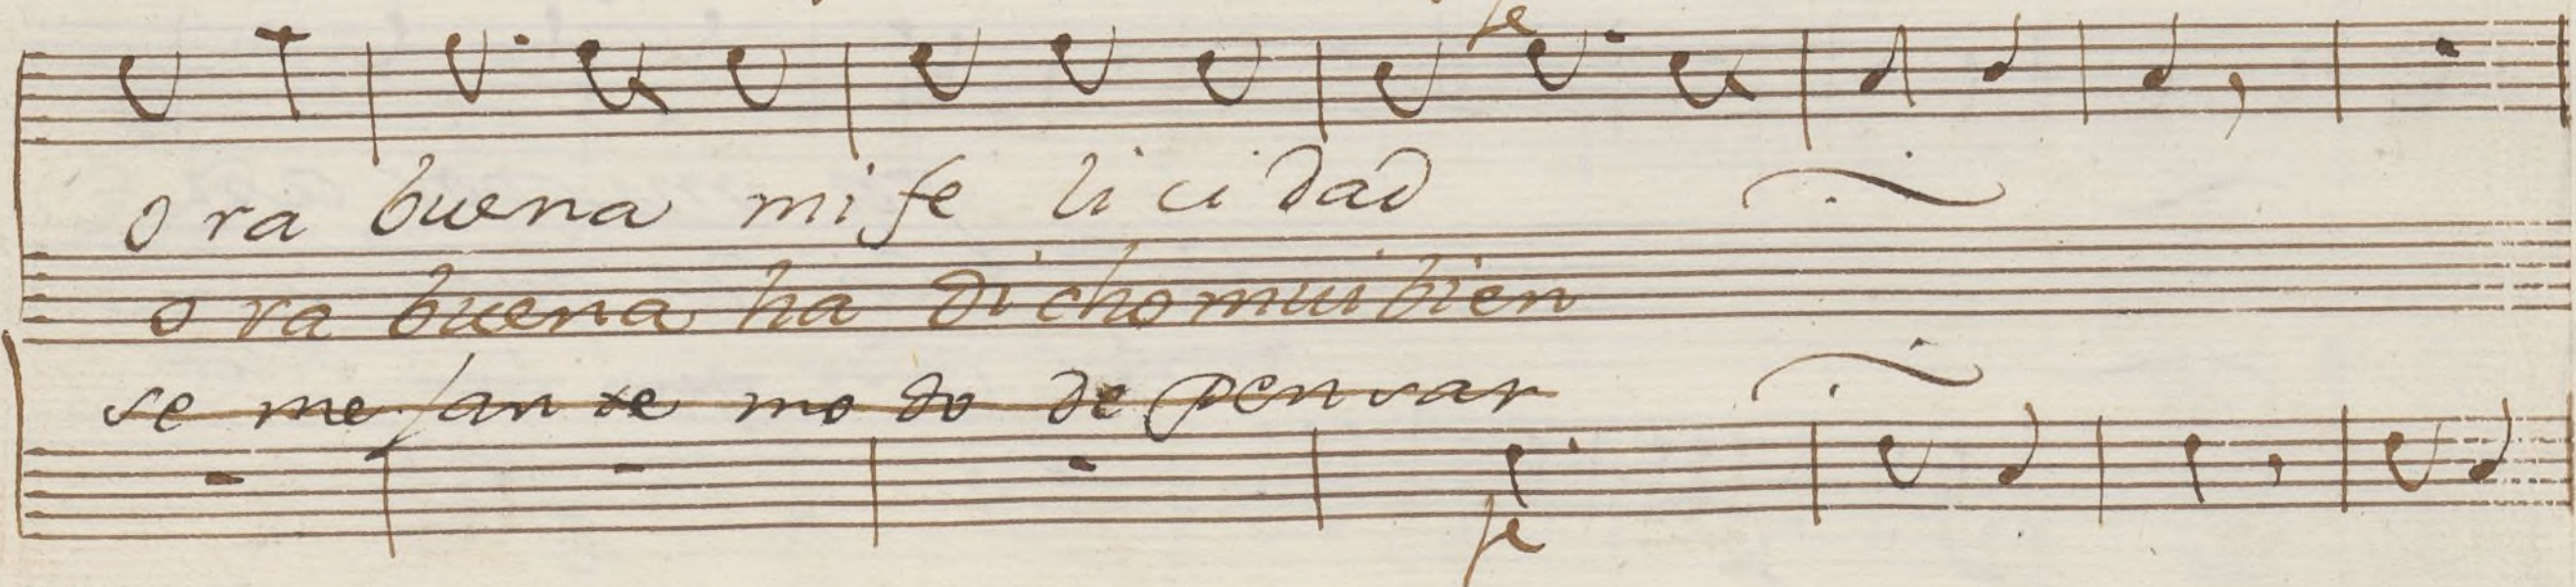 fe
o ra buena mi fe li ci dad
o ra buena ha di cho mui bien
se me jan te mo do de pensar
fe